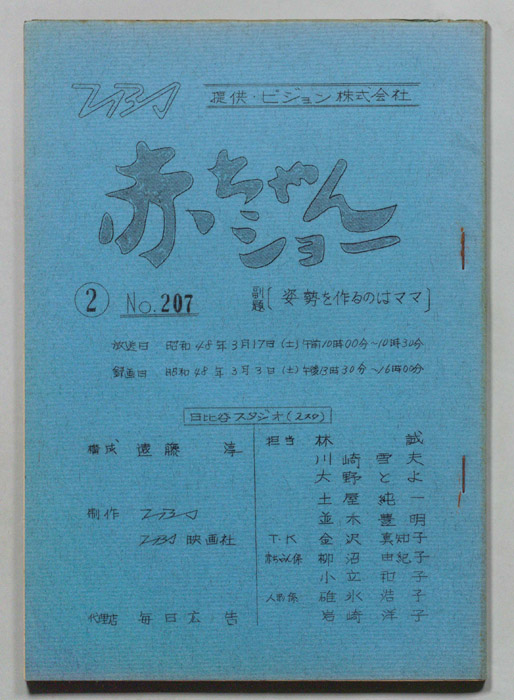 提供・ピジョン株式会社
赤ちゃん
ショー
② No.207 副題〔 姿勢を作るのはママ 〕
放送日 昭和48年3月17日(土)午前10時00分~10時30分
録画日 昭和48年3月3日(土)午後13時30分~16時00分
日比谷スタジオ(2スタ)
構成 遠藤 淳
制作
映画社
代理店 毎日広告
担当 林 誠
川崎雪夫
大野とよ
土屋純一
並木豊明
T.K 金沢真知子
赤ちゃん係 柳沼由紀子
小立和子
人形係 碓氷浩子
岩崎洋子